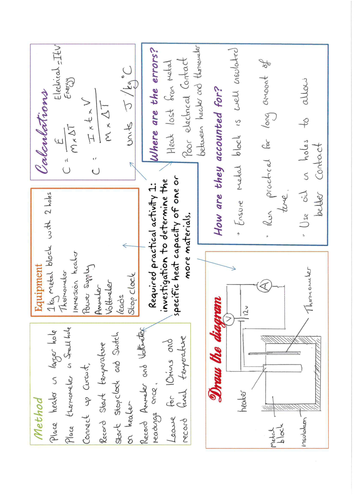 Method
Place heater in larger hole
Place thermometer in Small hole
Connect up Circuit.
Record Start temperature
Start Stopclock and Switch
on heater
Record Ammeter and Voltmeter
readings once.
Leave for 10mins and
record final temperature
Equipment
1kg metal block with 2 holes
Thermometer
Immersion heater
Power Supply
Ammeter
Voltmeter
Leads
Stop Clock
Calculations
Electrical = ItV
Energy
C = E
m × ΔT
C = I × t × V
m × ΔT
units J/kg°C
Required practical activity 1:
investigation to determine the
specific heat capacity of one or
more materials.
Draw the diagram
V
12v
A
heater
Thermometer
metal
block
insulation
Where are the errors?
Heat lost from metal
Poor electrical Contact
between heater and thermometer
How are they accounted for?
• Ensure metal block is well insulated
• Run practical for long amount of
time.
• Use oil in holes to allow
better Contact